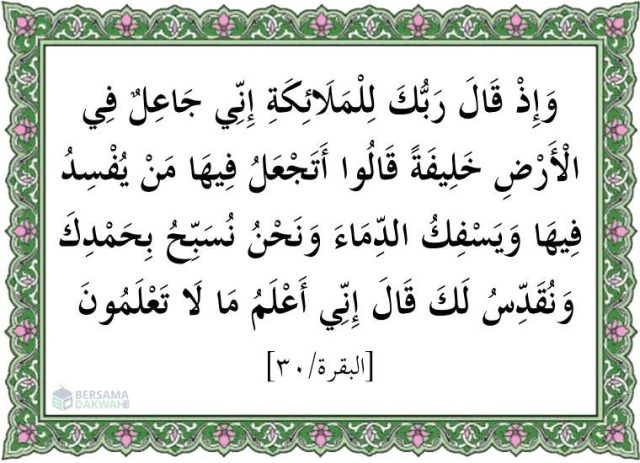 وَإِذْ قَالَ رَبُّكَ لِلْمَلَائِكَةِ إِنِّي جَاعِلٌ فِي
الْأَرْضِ خَلِيفَةً قَالُوا أَتَجْعَلُ فِيهَا مَنْ يُفْسِدُ
فِيهَا وَيَسْفِكُ الدِّمَاءَ وَنَحْنُ نُسَبِّحُ بِحَمْدِكَ
وَنُقَدِّسُ لَكَ قَالَ إِنِّي أَعْلَمُ مَا لَا تَعْلَمُونَ
[البقرة/٣٠]
BERSAMA
DAKWAH